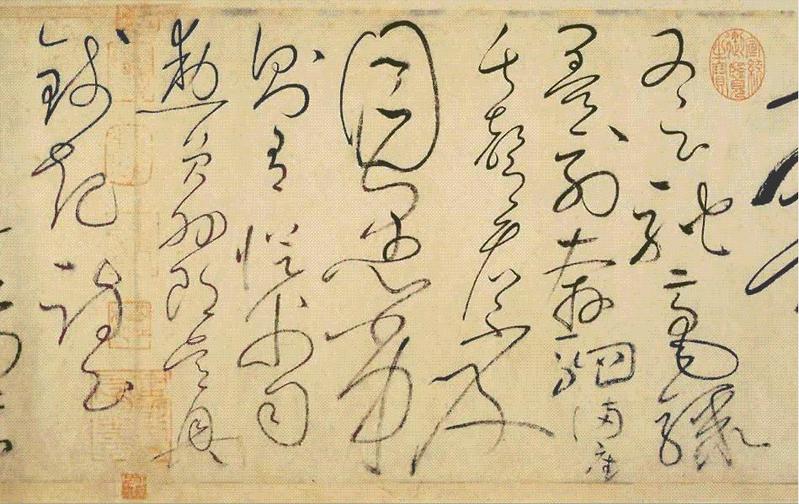 又云馳毫驟
墨列奔駟滿座
失聲看不及
目愚劣
則有從父司
勳員外郎吳興
錢起詩云